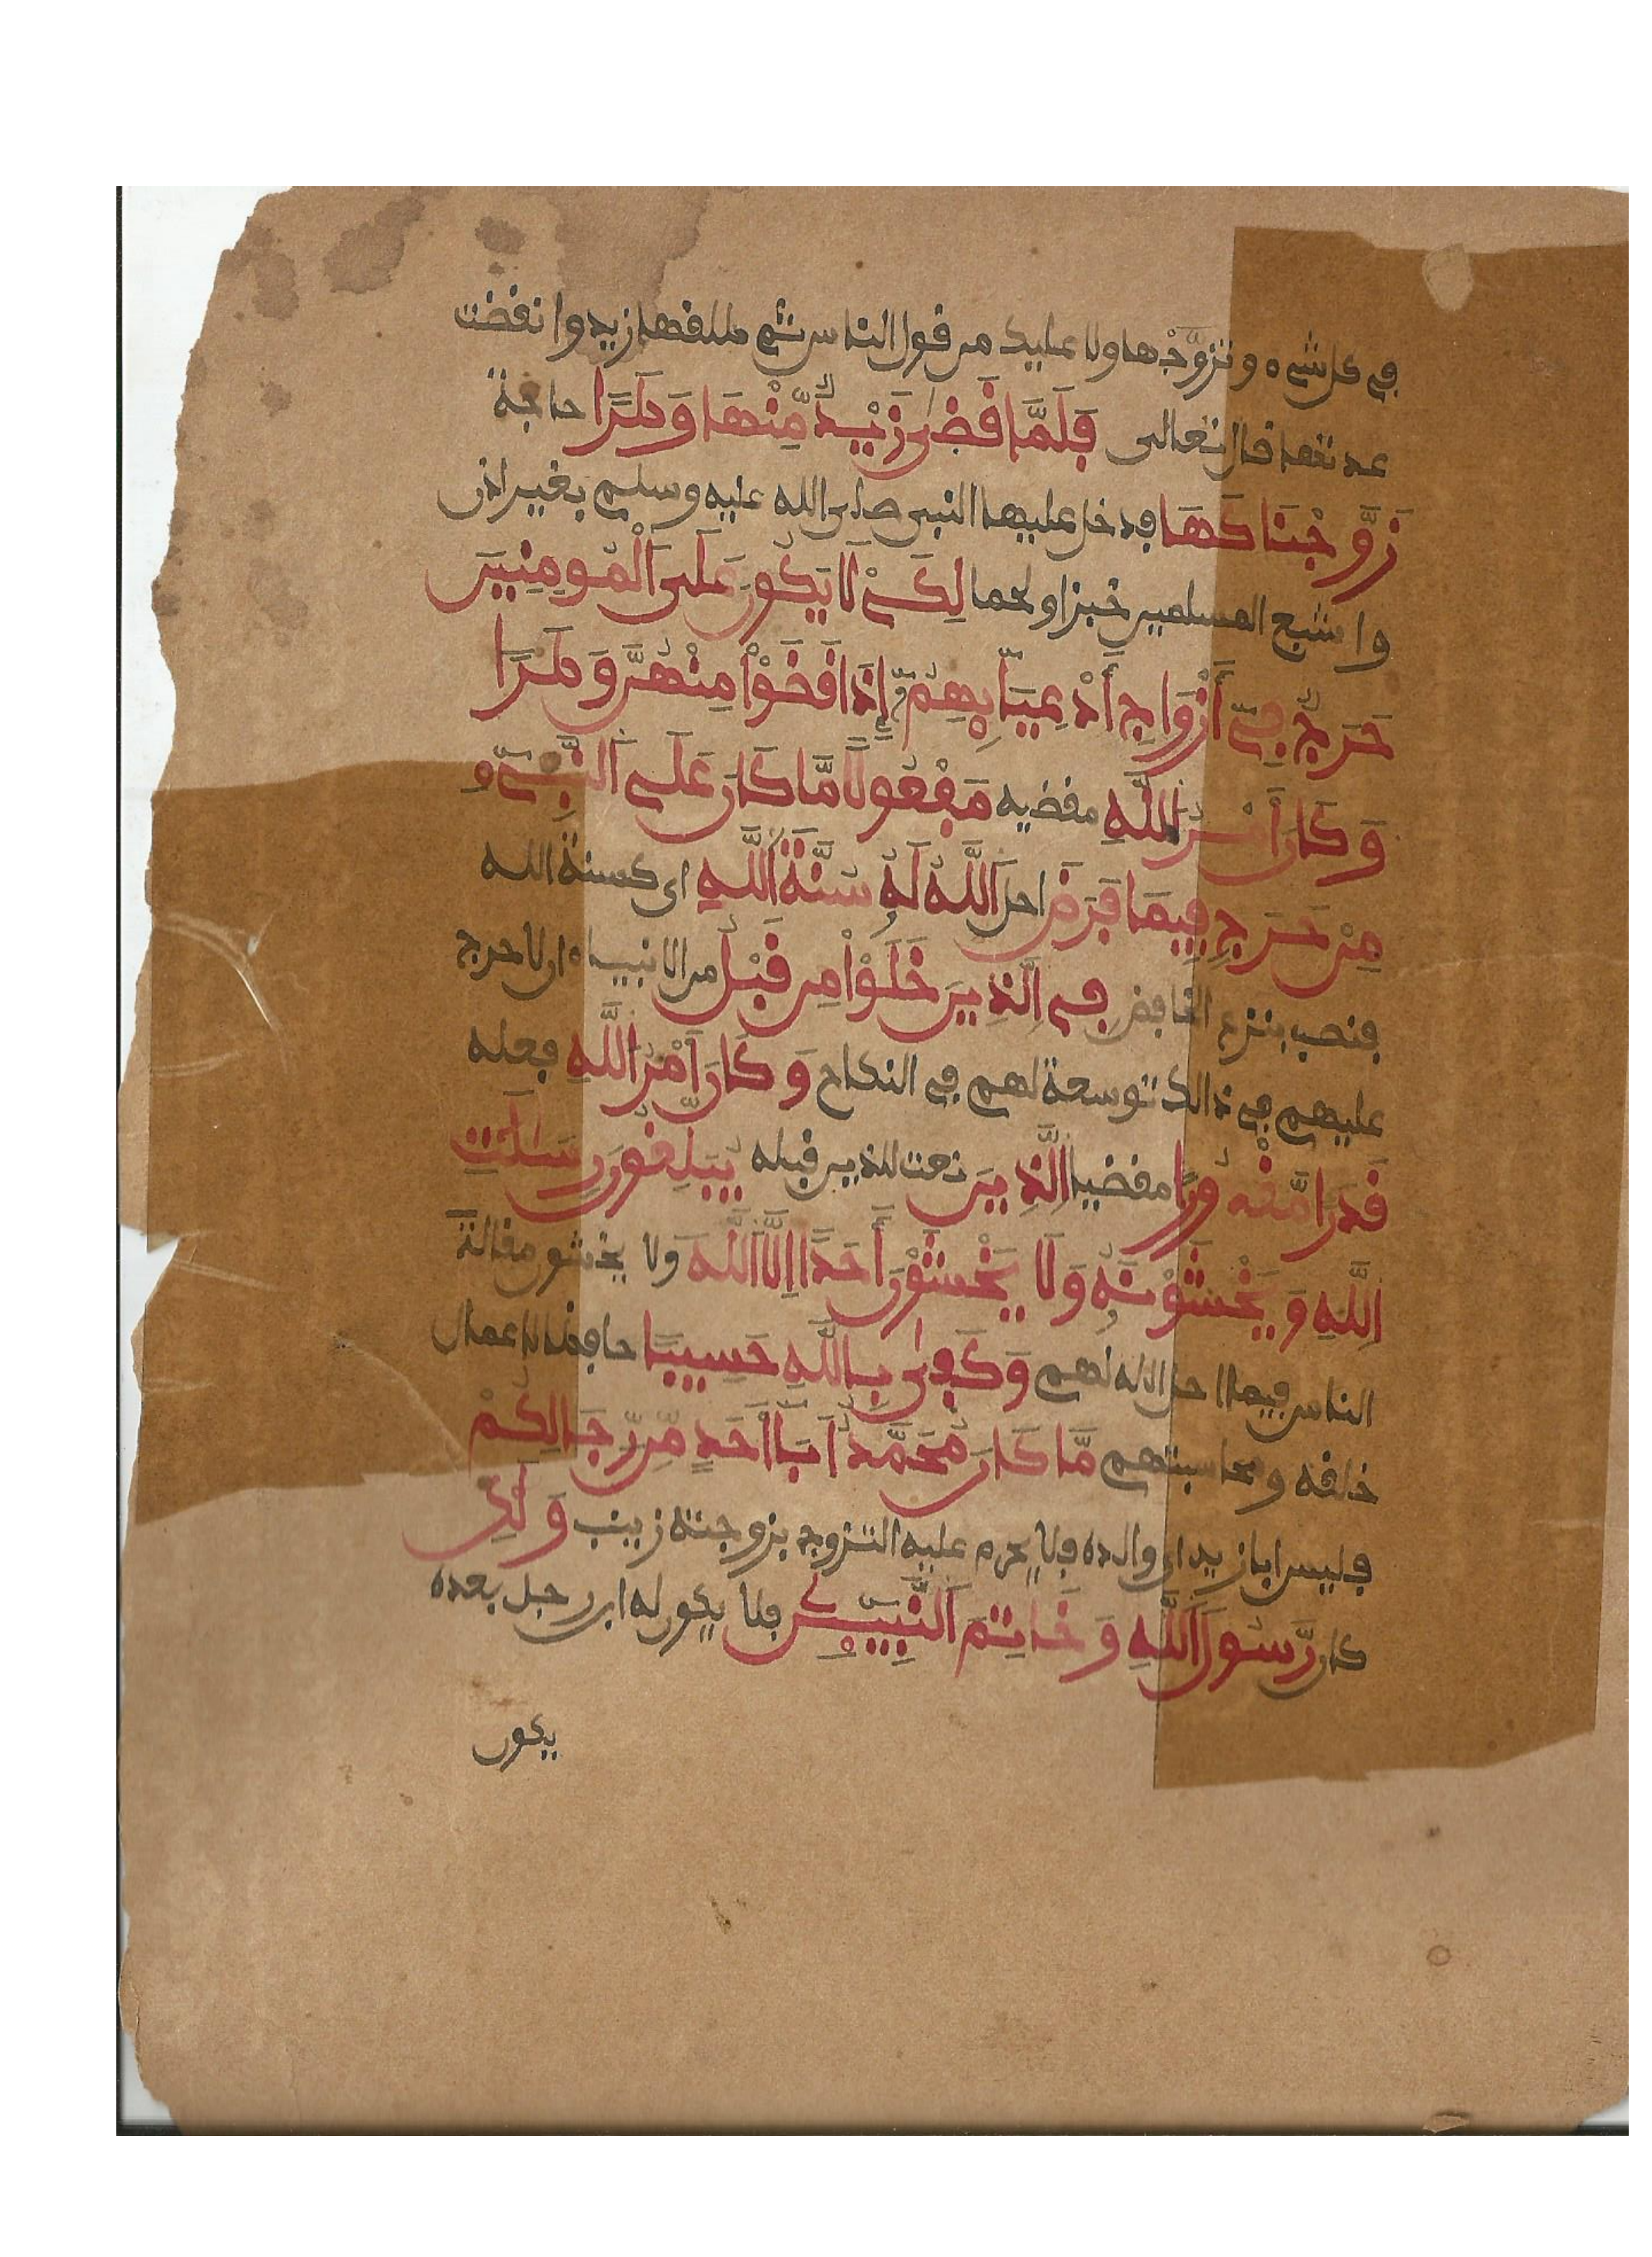 في كل شيء وتزوَّجْها ولا عليك من قول الناس ثم طلقها زيد وانقضت
عدتها قال تعالى فَلَمَّا قَضىٰ زَيْدٌ مِّنْهَا وَطَرًا حاجة
زَوَّجْنَاكَهَا فدخل عليها النبي صلى الله عليه وسلم بغير اذن
واشبع المسلمين خبزا ولحما لِكَيْ لَا يَكُونَ عَلَى اَلْمُومِنِينَ
حَرَجٌ فِي أَزْوَاجِ أَدْعِيَآئِهِمُ إِذَا قَضَوْاْ مِنْهُنَّ وَطَرًا
وَكَانَ أَمْرُ اللَّهِ مقضيه مَفْعُولًا مَّا كَانَ عَلَى اَلنَّبِيٓءِ
مِنْ حَرَجٍ فِيمَا فَرَضَ احل اَللَّهُ لَهُ سُنَّةَ اَللَّهِ اي كسنة الله
فنصب بنزع الخافض فِي اِلَّذِينَ خَلَوْاْ مِن قَبْلُ من الانبياء ان لا حرج
عليهم في ذالك توسعة لهم في النكاح وَكَانَ أَمْرُ اللَّهِ فعله
قَدَرًا مَّقْدُورًا مقضيا اِلَّذِينَ نعت للذين قبله يُبَلِّغُونَ رِسَٰلَٰتِ
اِللَّهِ وَيَخْشَوْنَهُ وَلَا يَخْشَوْنَ أَحَدًا اِلَّا اَللَّهَ ولا يخشون مقالة
الناس فيما احل الله لهم وَكَفىٰ بِاللَّهِ حَسِيبًا حافظا لاعمال
خلقه ومحاسبتهم مَّا كَانَ مُحَمَّدٌ اَبَآ أَحَدٍ مِّن رِّجَالِكُمْ
فليس ابا زيد اي والده فلا يحرم عليه التزوج بزوجته زينب وَلَٰكِن
كان رَّسُولَ اَللَّهِ وَخَاتِمَ اَلنَّبِيٓـِٕينَ فلا يكون له ابن رجل بعده
يكون